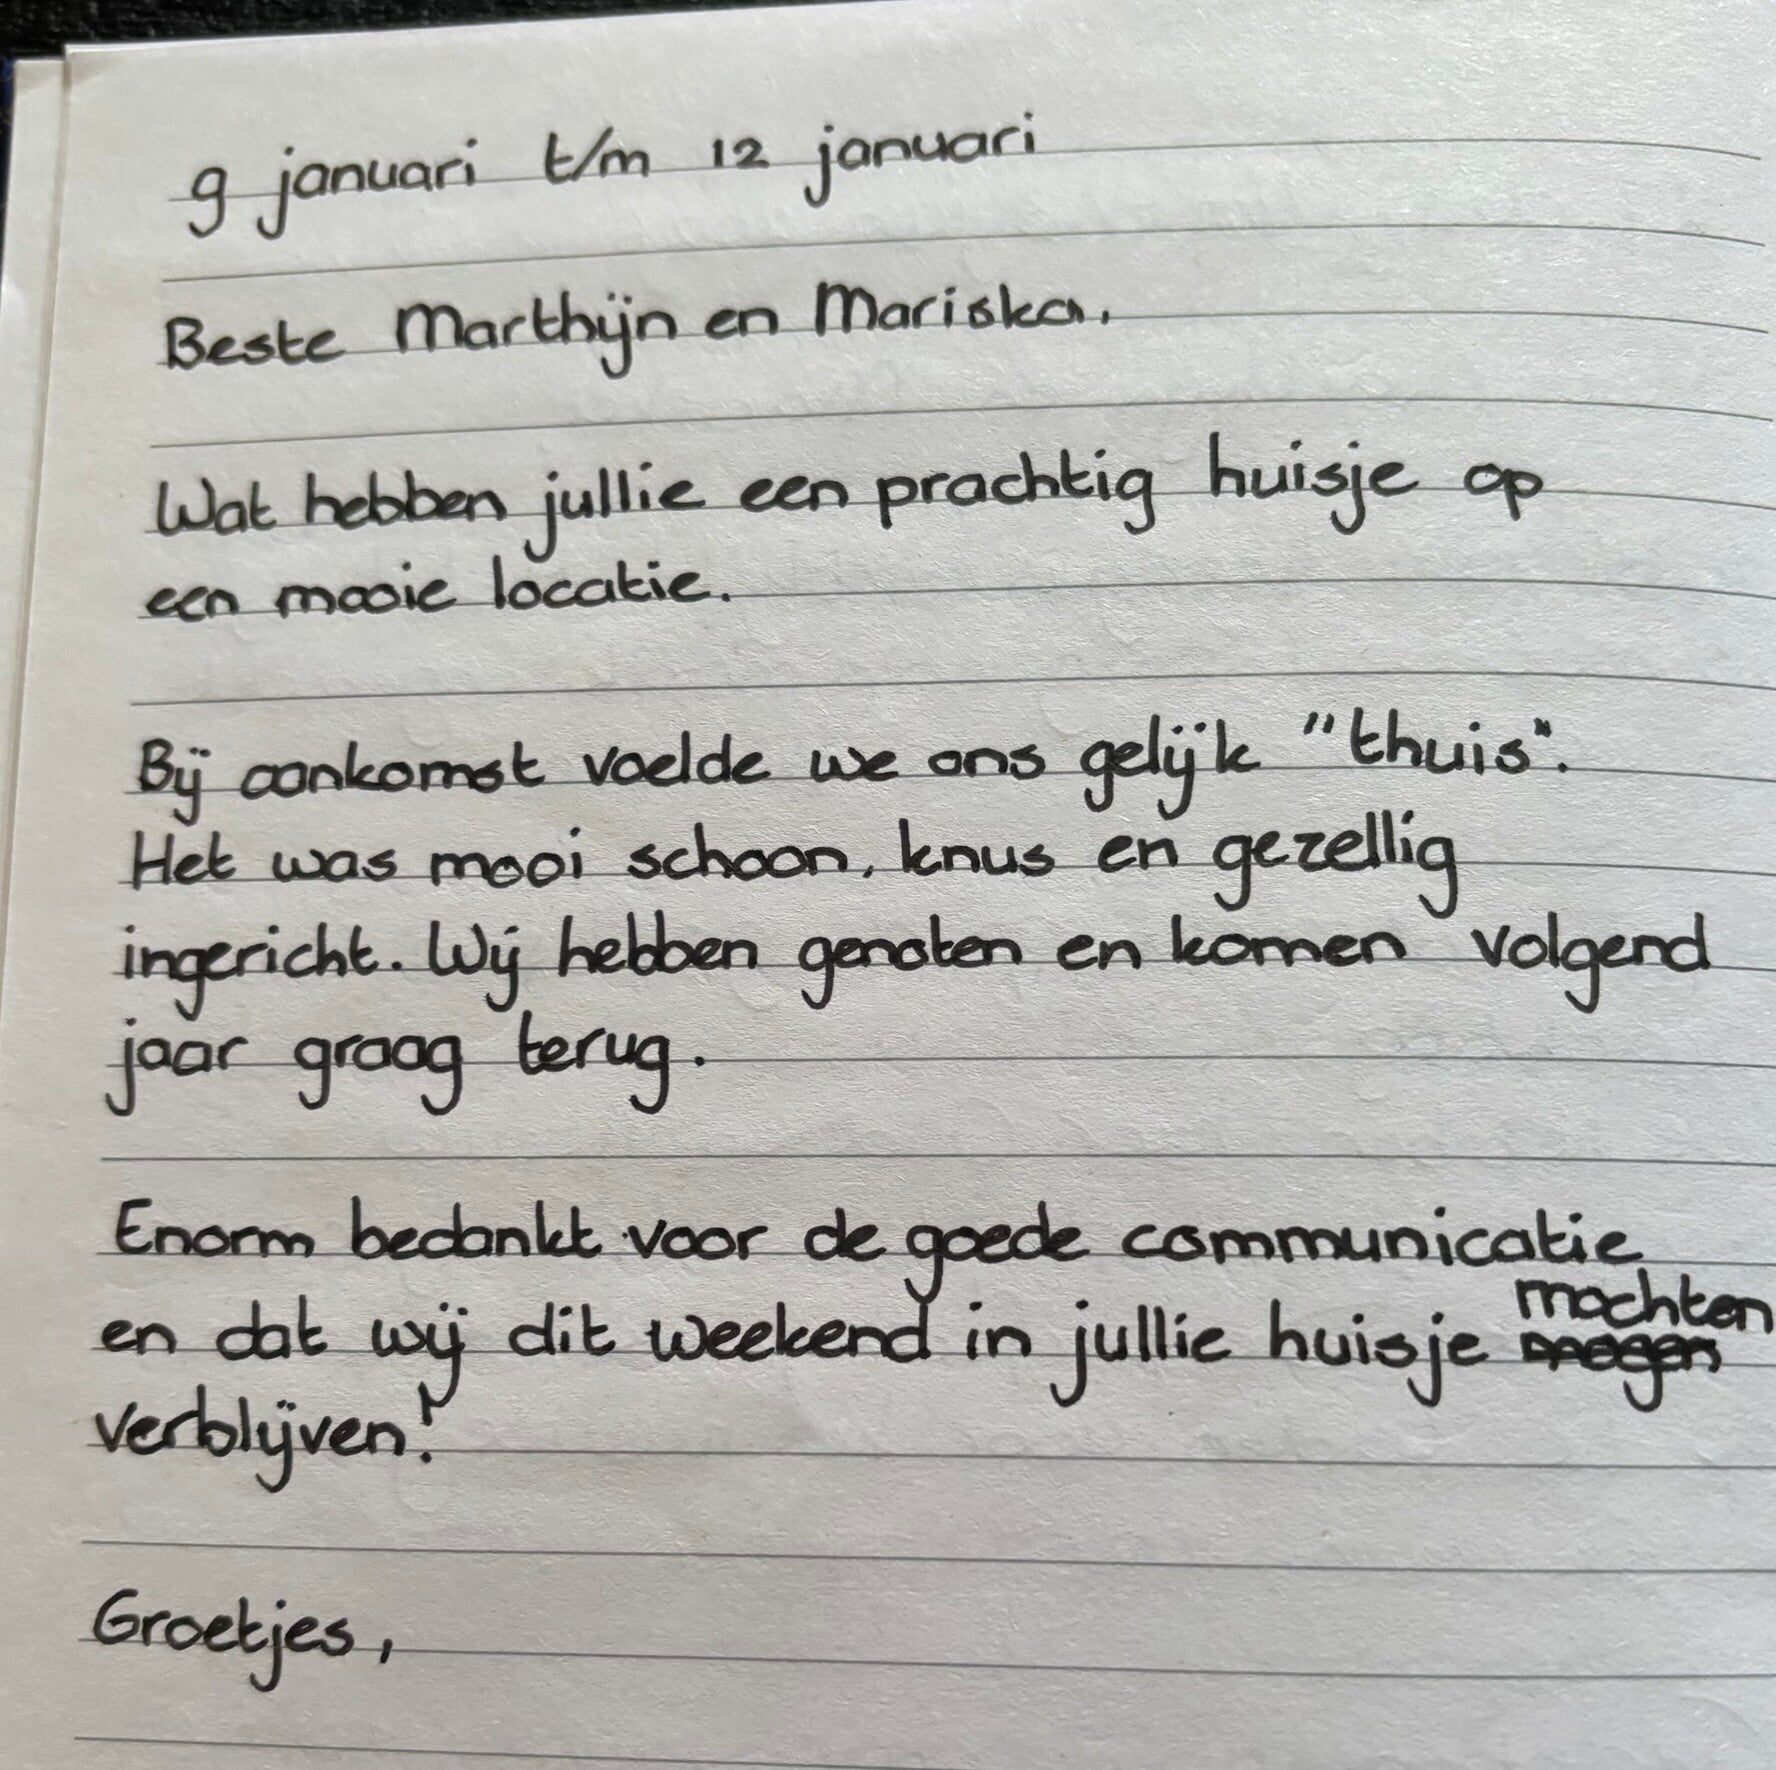 9 januari t/m 12 januari
Beste Marthijn en Mariska,
Wat hebben jullie een prachtig huisje op
een mooie locatie.
Bij aankomst voelde we ons gelijk "thuis".
Het was mooi schoon, knus en gezellig
ingericht. Wij hebben genoten en komen volgend
jaar graag terug.
Enorm bedankt voor de goede communicatie
en dat wij dit weekend in jullie huisje mochten
verblijven!
Groetjes,